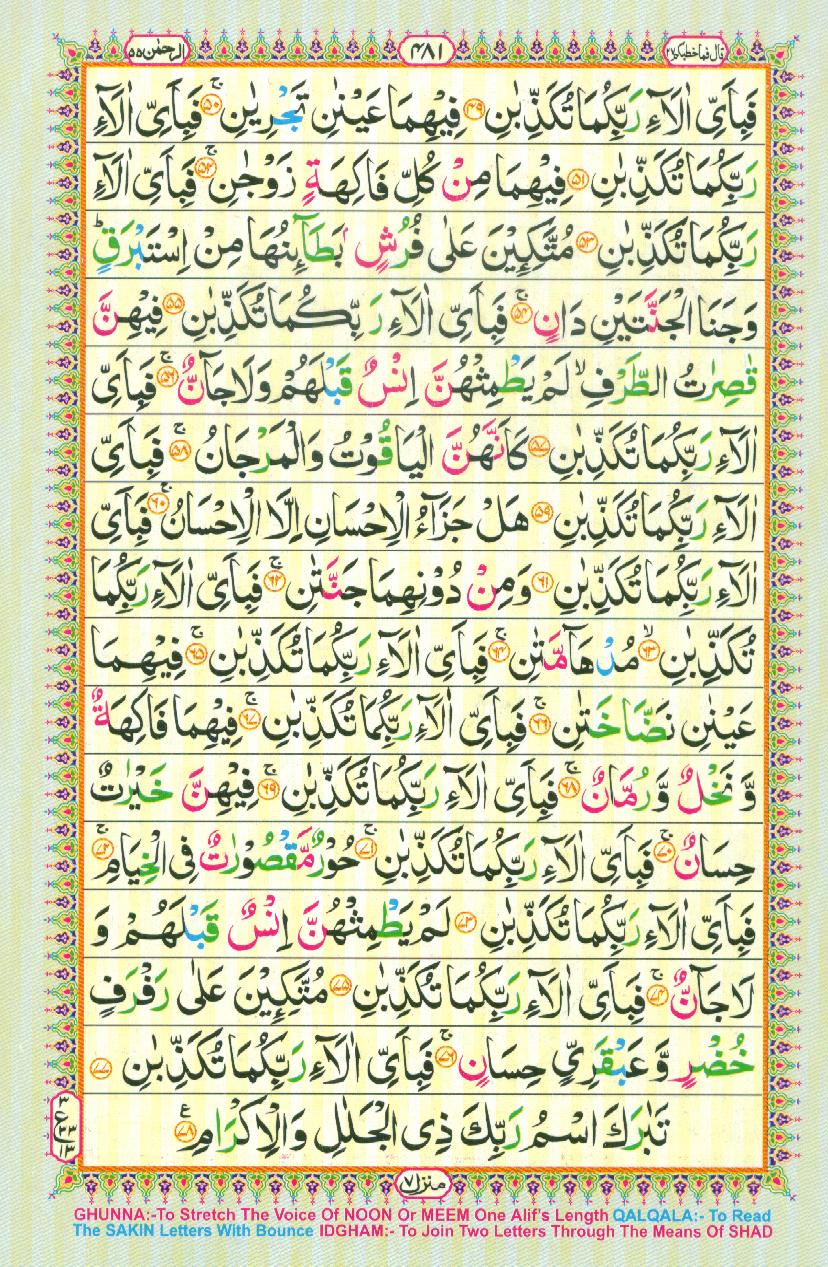 قال فما خطبكم ٢٧
٤٨١
الرحمٰن ٥٥
فَبِاَىِّ اٰلَآءِ رَبِّكُمَا تُكَذِّبٰنِ ﴿۴۹﴾ فِيْهِمَا عَيْنٰنِ تَجْرِيٰنِ ۚ﴿۵۰﴾ فَبِاَىِّ اٰلَآءِ
رَبِّكُمَا تُكَذِّبٰنِ ﴿۵۱﴾ فِيْهِمَا مِنْ كُلِّ فَاكِهَةٍ زَوْجٰنِ ۚ﴿۵۲﴾ فَبِاَىِّ اٰلَآءِ
رَبِّكُمَا تُكَذِّبٰنِ ﴿۵۳﴾ مُتَّكِـِٕيْنَ عَلٰى فُرُشٍۭ بَطَآئِنُهَا مِنْ اِسْتَبْرَقٍ ؕ
وَجَنَا الْجَنَّتَيْنِ دَانٍ ۚ﴿۵۴﴾ فَبِاَىِّ اٰلَآءِ رَبِّكُمَا تُكَذِّبٰنِ ﴿۵۵﴾ فِيْهِنَّ
قٰصِرٰتُ الطَّرْفِ ۙ لَمْ يَطْمِثْهُنَّ اِنْسٌ قَبْلَهُمْ وَلَا جَآنٌّ ۚ﴿۵۶﴾ فَبِاَىِّ
اٰلَآءِ رَبِّكُمَا تُكَذِّبٰنِ ﴿۵۷﴾ كَاَنَّهُنَّ الْيَاقُوْتُ وَالْمَرْجَانُ ۚ﴿۵۸﴾ فَبِاَىِّ
اٰلَآءِ رَبِّكُمَا تُكَذِّبٰنِ ﴿۵۹﴾ هَلْ جَزَآءُ الْاِحْسَانِ اِلَّا الْاِحْسَانُ ۚ﴿۶۰﴾ فَبِاَىِّ
اٰلَآءِ رَبِّكُمَا تُكَذِّبٰنِ ﴿۶۱﴾ وَمِنْ دُوْنِهِمَا جَنَّتٰنِ ۚ﴿۶۲﴾ فَبِاَىِّ اٰلَآءِ رَبِّكُمَا
تُكَذِّبٰنِ ۙ﴿۶۳﴾ مُدْهَآمَّتٰنِ ۚ﴿۶۴﴾ فَبِاَىِّ اٰلَآءِ رَبِّكُمَا تُكَذِّبٰنِ ۚ﴿۶۵﴾ فِيْهِمَا
عَيْنٰنِ نَضَّاخَتٰنِ ۚ﴿۶۶﴾ فَبِاَىِّ اٰلَآءِ رَبِّكُمَا تُكَذِّبٰنِ ۚ﴿۶۷﴾ فِيْهِمَا فَاكِهَةٌ
وَّنَخْلٌ وَّرُمَّانٌ ۚ﴿۶۸﴾ فَبِاَىِّ اٰلَآءِ رَبِّكُمَا تُكَذِّبٰنِ ۚ﴿۶۹﴾ فِيْهِنَّ خَيْرٰتٌ
حِسَانٌ ۚ﴿۷۰﴾ فَبِاَىِّ اٰلَآءِ رَبِّكُمَا تُكَذِّبٰنِ ۚ﴿۷۱﴾ حُوْرٌ مَّقْصُوْرٰتٌ فِى الْخِيَامِ ۚ﴿۷۲﴾
فَبِاَىِّ اٰلَآءِ رَبِّكُمَا تُكَذِّبٰنِ ﴿۷۳﴾ لَمْ يَطْمِثْهُنَّ اِنْسٌ قَبْلَهُمْ وَ
لَا جَآنٌّ ۚ﴿۷۴﴾ فَبِاَىِّ اٰلَآءِ رَبِّكُمَا تُكَذِّبٰنِ ﴿۷۵﴾ مُتَّكِـِٕيْنَ عَلٰى رَفْرَفٍ
خُضْرٍ وَّعَبْقَرِىٍّ حِسَانٍ ۚ﴿۷۶﴾ فَبِاَىِّ اٰلَآءِ رَبِّكُمَا تُكَذِّبٰنِ ﴿۷۷﴾
تَبٰرَكَ اسْمُ رَبِّكَ ذِى الْجَلٰلِ وَالْاِكْرَامِ ﴿۷۸﴾ ع
٣
ع ٣٣
١٣
منزل ٧
GHUNNA:-To Stretch The Voice Of NOON Or MEEM One Alif's Length QALQALA:- To Read
The SAKIN Letters With Bounce IDGHAM:- To Join Two Letters Through The Means Of SHAD